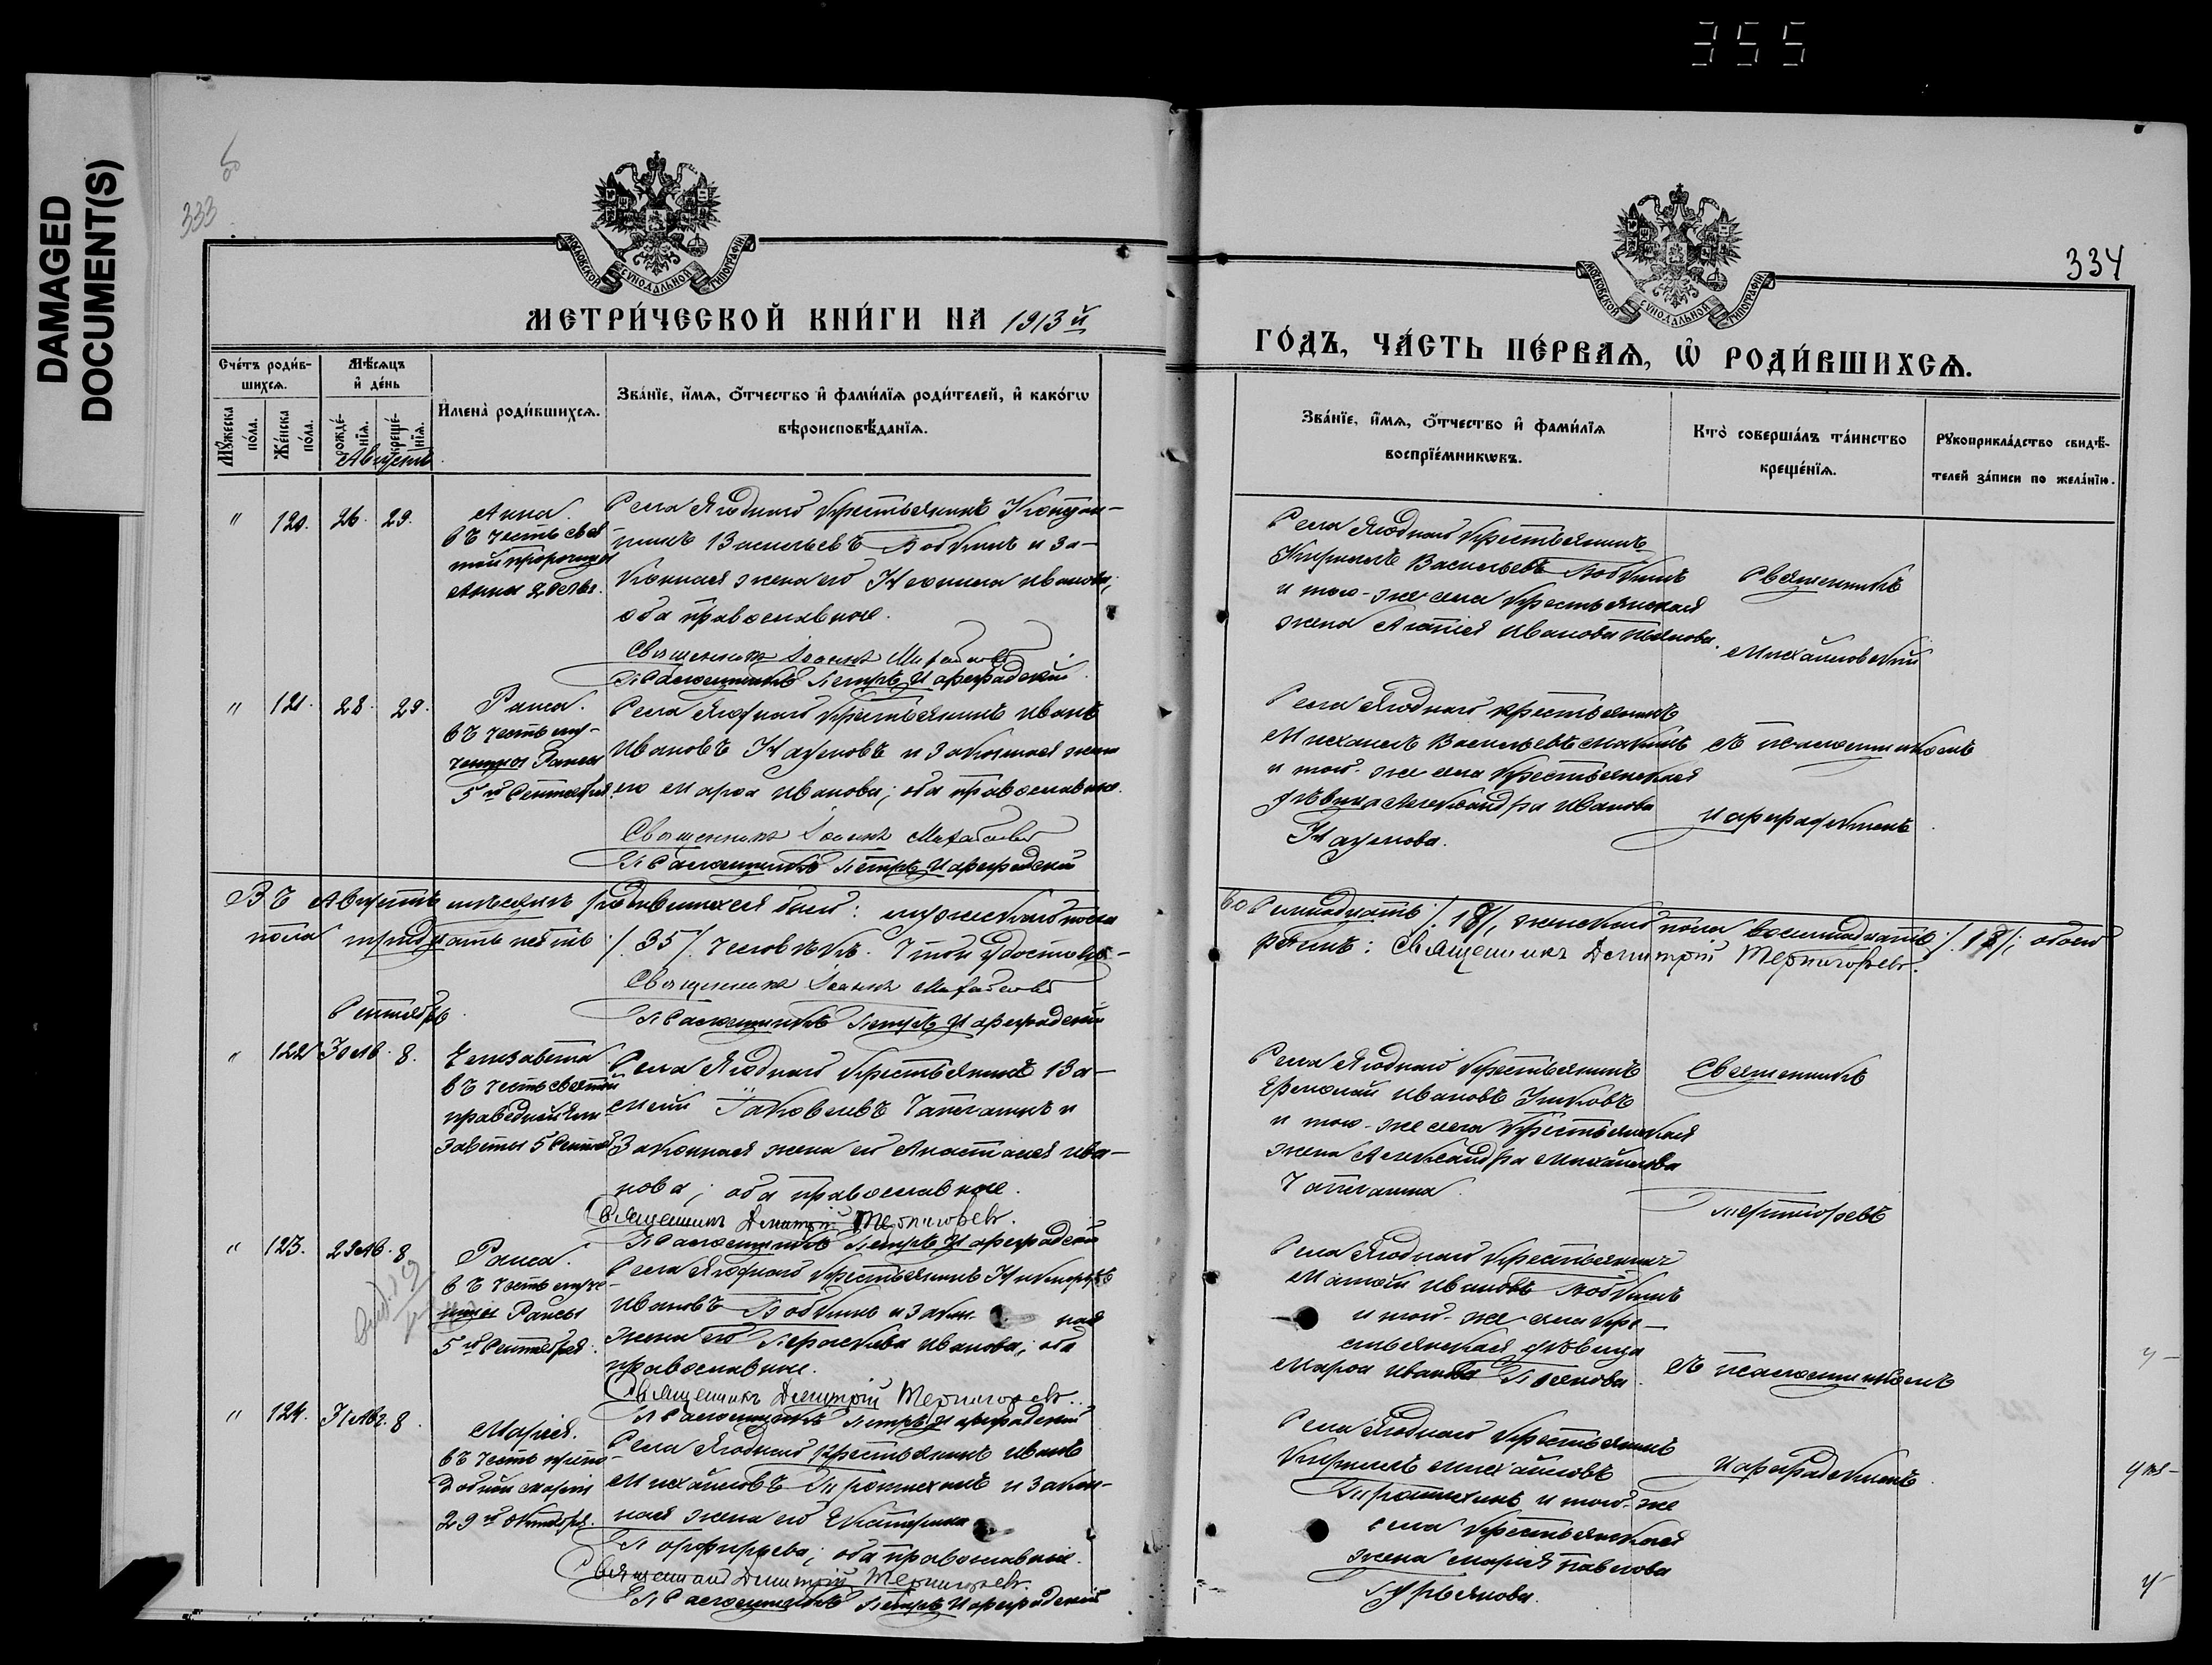 355
DAMAGED
DOCUMENT(S)
333
МОСКОВСКОЙ СУНОДАЛЬНОЙ ТИПОГРАФІИ
МЕТРИ́ЧЕСКОЙ КНИ́ГИ НА 1913 й
Сче́тъ роди́в-
шихсѧ.
Мꙋ́жеска
по́ла.
Же́нска
по́ла.
Мѣ́сѧцъ
и҆ де́нь
рожде́-
нїѧ.
креще́-
нїѧ.
И҆мена̀ роди́вшихсѧ.
Зва́нїе, и҆́мѧ, ѻ҆́тчество и҆ фами́лїѧ роди́телей, и҆ како́гѡ
вѣроисповѣ́данїѧ.
Августъ
" 120. 26. 29.
Анна.
въ честь свя
той пророчицы
Анны
Села Ягоднаго крестьянинъ
Васильевъ Бобкинъ и за-
конная жена его Неонила Иванова;
оба православные.
Священникъ Іоаннъ Михайловскій
Псаломщикъ Петръ Цареградскій
" 121. 28. 29.
Раиса.
въ честь му-
ченицы Раисы
5го Сентября.
Села Ягоднаго крестьянинъ Иванъ
Ивановъ Наумовъ и законная жена
его Марѳа Иванова; оба православные.
Священникъ Іоаннъ Михайловскій
Псаломщикъ Петръ Цареградскій
Въ Августѣ мѣсяцѣ родившихся было: мужескаго пола
пола тридцать пять /35/ человѣкъ. Что и удостовѣ-
Священникъ Іоаннъ Михайловскій
Псаломщикъ Петръ Цареградскій
Сентябрь
" 122 30 Ав. 8.
Елизавета
въ честь святой
праведной Ели
заветы 5 Сентяб
Села Ягоднаго крестьянинъ Ва-
силій Іаковлевъ Чапыгинъ и
Законная жена его Анастасія Ива-
нова; оба православные.
Священникъ Димитрій Терпигорьевъ.
Псаломщикъ Петръ Цареградскій
" 123. 29 Ав. 8
Раиса.
въ честь муче
ницы Раисы
5го Сентября.
Села Ягоднаго крестьянинъ
Ивановъ Бобкинъ и закон ная
жена его Параскева Иванова; оба
православные.
Священникъ Димитрій Терпигорьевъ.
Псаломщикъ Петръ Цареградскій
" 124. 31 Авг. 8.
Марія.
въ честь препо
добной Маріи
29го Октября.
Села Ягоднаго крестьянинъ Иванъ
Михайловъ и закон-
ная жена его Екатерина
Порфирьева; оба православные.
Священникъ Димитрій Терпигорьевъ.
Псаломщикъ Петръ Цареградскій
334
МОСКОВСКОЙ СУНОДАЛЬНОЙ ТИПОГРАФІИ
ГО́ДЪ, ЧА́СТЬ ПЕ́РВАѦ, Ѽ РОДИ́ВШИХСѦ.
Зва́нїе, и҆́мѧ, ѻ҆́тчество и҆ фами́лїѧ
воспрїе́мникѡвъ.
Кто̀ соверша́лъ та́инство
креще́нїѧ.
Рꙋкоприкла́дство свидѣ́-
телей за́писи по жела́нїю.
Села Ягоднаго крестьянинъ
Кириллъ Васильевъ Бобкинъ
и того-же села крестьянская
жена Агапія Иванова
Священникъ
Михайловскій
Села Ягоднаго крестьянинъ
Михаилъ Васильевъ
и того-же села крестьянская
дѣвица Александра Иванова
Наумова.
съ псаломщикомъ
Цареградскимъ
семнадцать /17/, женскаго пола восемнадцать /18/; обоего
ряемъ: Священникъ Димитрій Терпигорьевъ.
Села Ягоднаго крестьянинъ
Ермолай Ивановъ
и того-же села крестьянская
жена Александра Михайлова
Чапыгина.
Священникъ
Терпигорьевъ
Села Ягоднаго крестьянинъ
Матѳій Ивановъ Бобкинъ
и того-же села кре-
стьянская дѣвица
Марѳа Иванова
съ псаломщикомъ
Села Ягоднаго крестьянинъ
Кириллъ Михайловъ
и того-же
села крестьянская
жена Марія Павлова
Гурьянова.
Цареградскимъ